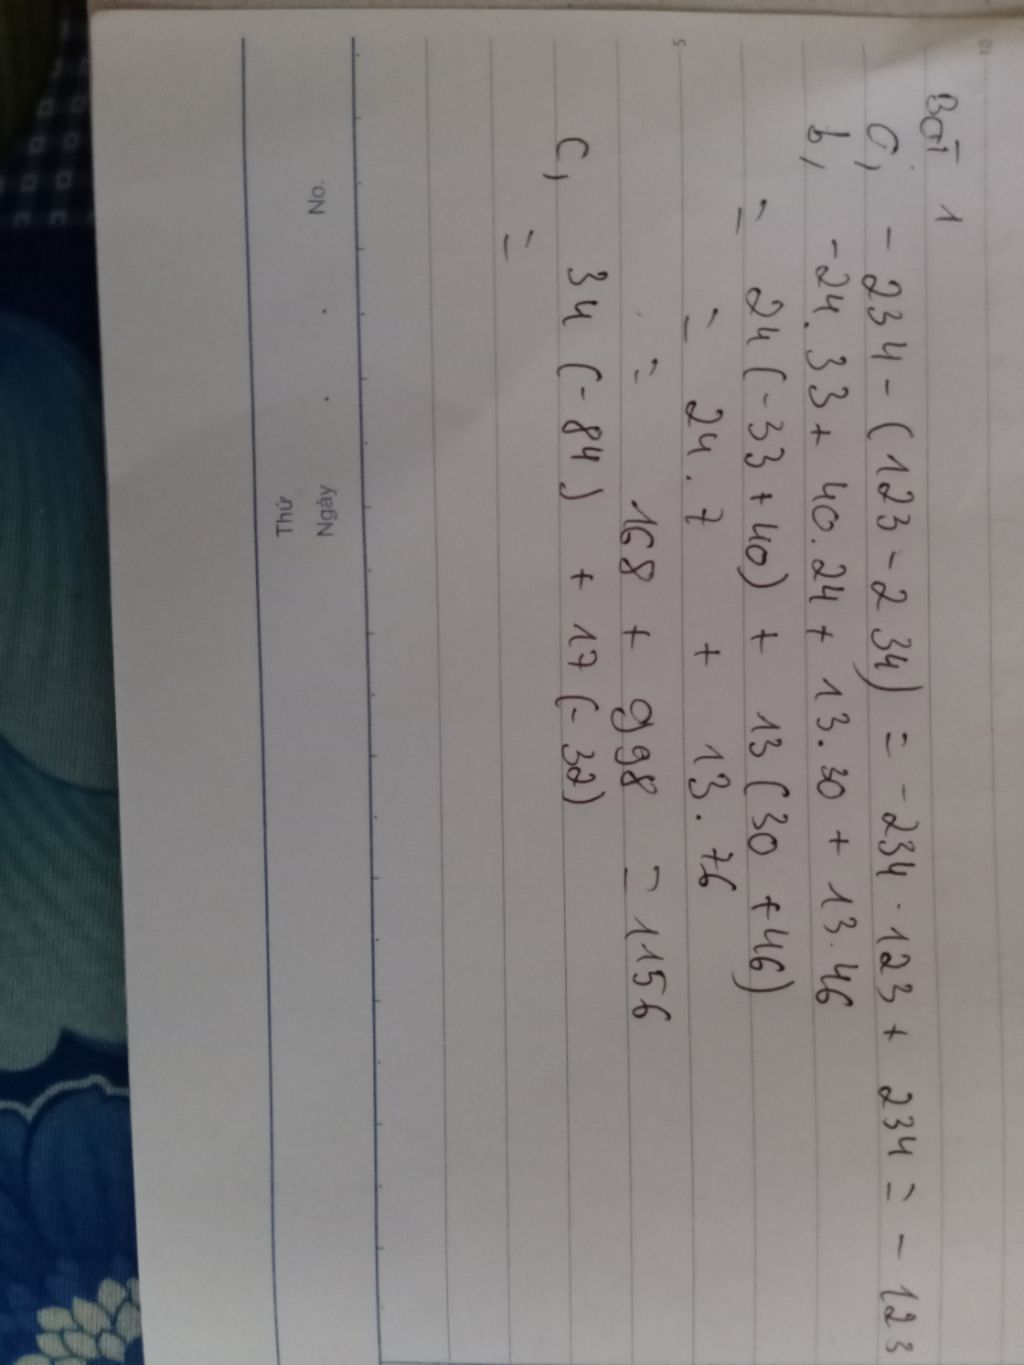 10
Bài 1
a, - 234 - (123 - 234) = - 234 - 123 + 234 = - 123
b, -24. 33 + 40.24 + 13.30 + 13.46
= 24 (-33 + 40) + 13 (30 + 46)
5
= 24. 7 + 13. 76
= 168 + 998 = 1156
c, 34 (- 84) + 17 (- 32)
=
No. . .
Thứ
Ngày